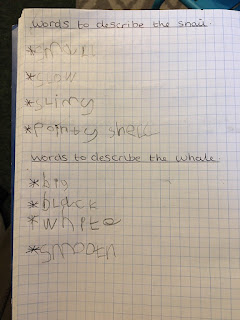 words to describe the snail.
*small
*slow
*slimy
*pointy shell
words to describe the whale
*big
*black
*white
*smooth